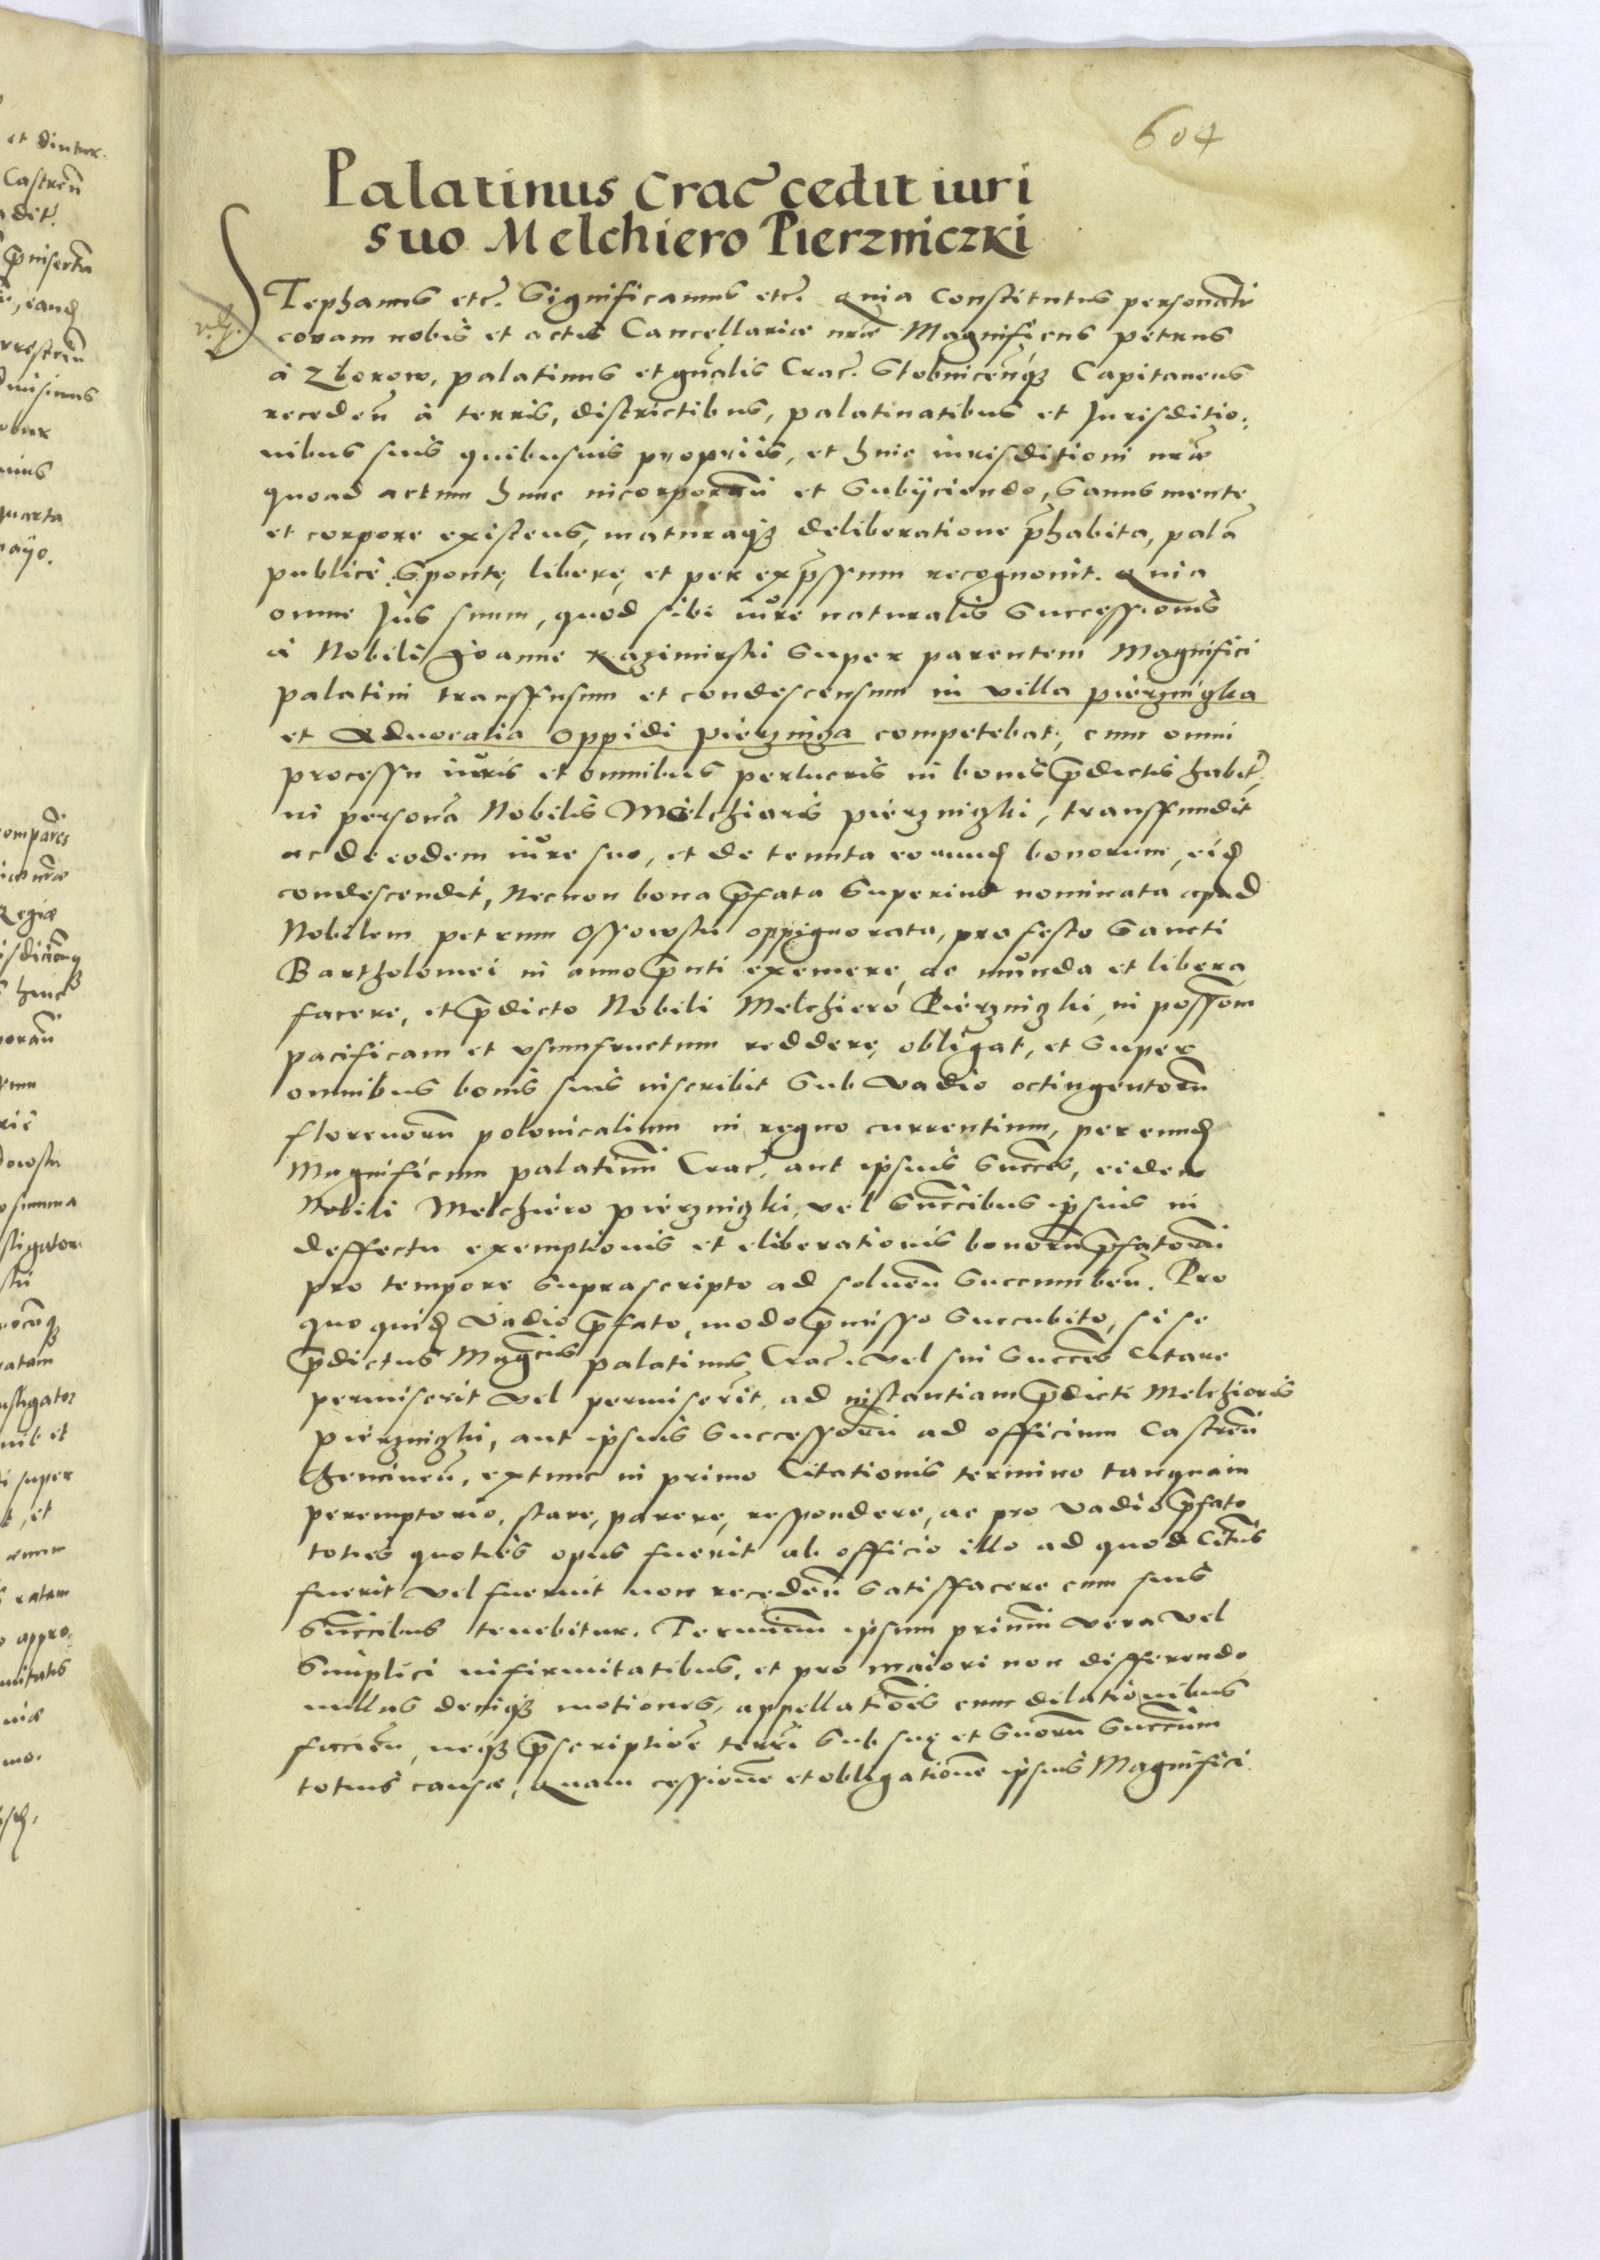 604
Palatinus Crac̃ cedit iuri
suo Melchiero Pierzniczki
STephanus etc̃. Significamus etc̃. Quia Constitutus personalr̃
coram nobis et actis Cancellariæ nr̃æ Magnificus Petrus
à Zborow, palatinus et gn̄alis Crac̃. Stobnicen̄qz Capitaneus
receden̄ à terris, districtibus, palatinatibus et Jurisditio-
nibus suis quibusuis proprijs, et huic iurisditioni nr̃æ
quoad actum hunc incorporan̄ et Subijciendo, Sanus mente
et corpore existens, maturaqz deliberatione p̄habita, palā
publicè Sponte, liberè, et per exp̄ssum recognouit. Quia
omne Jus suum, quod sibi iure naturalis Successionis
à Nobili Joanne Kazimirski Super parentem Magnifici
palatini transfusum et condescensum in villa pierzniczka
et Aduocatia oppidi pierzniza competebat, cum omni
processu iuris et omnibus perlucris in bonis p̄dictis habit̃,
in personā Nobilis Melchioris pierzniczki, transfundit
ac de eodem iure suo, et de tenuta eorund̃ bonorum, eid̃
condescendit, Necnon bona p̄fata Superius nominata apud
Nobilem petrum Ossowski oppignorata, pro festo Sancti
Bartholomei in anno p̄nti exemere, ac munda et libera
facere, et p̄dicto Nobili Melchiero Pierzniczki, in poss̃om
pacificam et vsumfructum reddere, obligat, et Super
omnibus bonis suis inscribit Sub Vadio octingentorū
florenorū polonicalium in regno currentium, per eund̃
Magnificum palatinū Crac̃. aut ipsius Succ̄es, eidem
Nobili Melchiero pierzniczki, vel Succ̄ibus ipsius in
deffectu exemptionis et eliberationis bonorū p̄fatorū
pro tempore Suprascripto ad soluen̄ Succumben̄. Pro
quo quid̃ Vadio p̄fato, modo p̄misso Succubito, si se
p̄dictus Mag̃cus palatinus Crac̃. vel sui Succ̄es Citare
permiserit vel permiserīt, ad instantiam p̄dicti Melchioris
pierzniczki, aut ipsius Successorū ad officium Castren̄
Chencinen̄, extunc in primo Citationis termino tanquam
peremptorio, stare, parere, respondere, ac pro Vadio p̄fato
toties quoties opus fuerit ab officio illo ad quod Cit̃us
fuerit vel fuerint non receden̄ Satisfacere cum suis
Succ̄ibus tenebitur. Terminum ipsum primū Vera vel
Simplici infirmitatibus, et pro maiori non differendo
nullas deniqz motiones, appellatiōes cum dilationibus
facien̄, neqz p̄scriptiōe terr̃i Sub suæ et Suorū Succ̄um
totius causæ, Quam cessionē et obligationē ipsius Magnifici